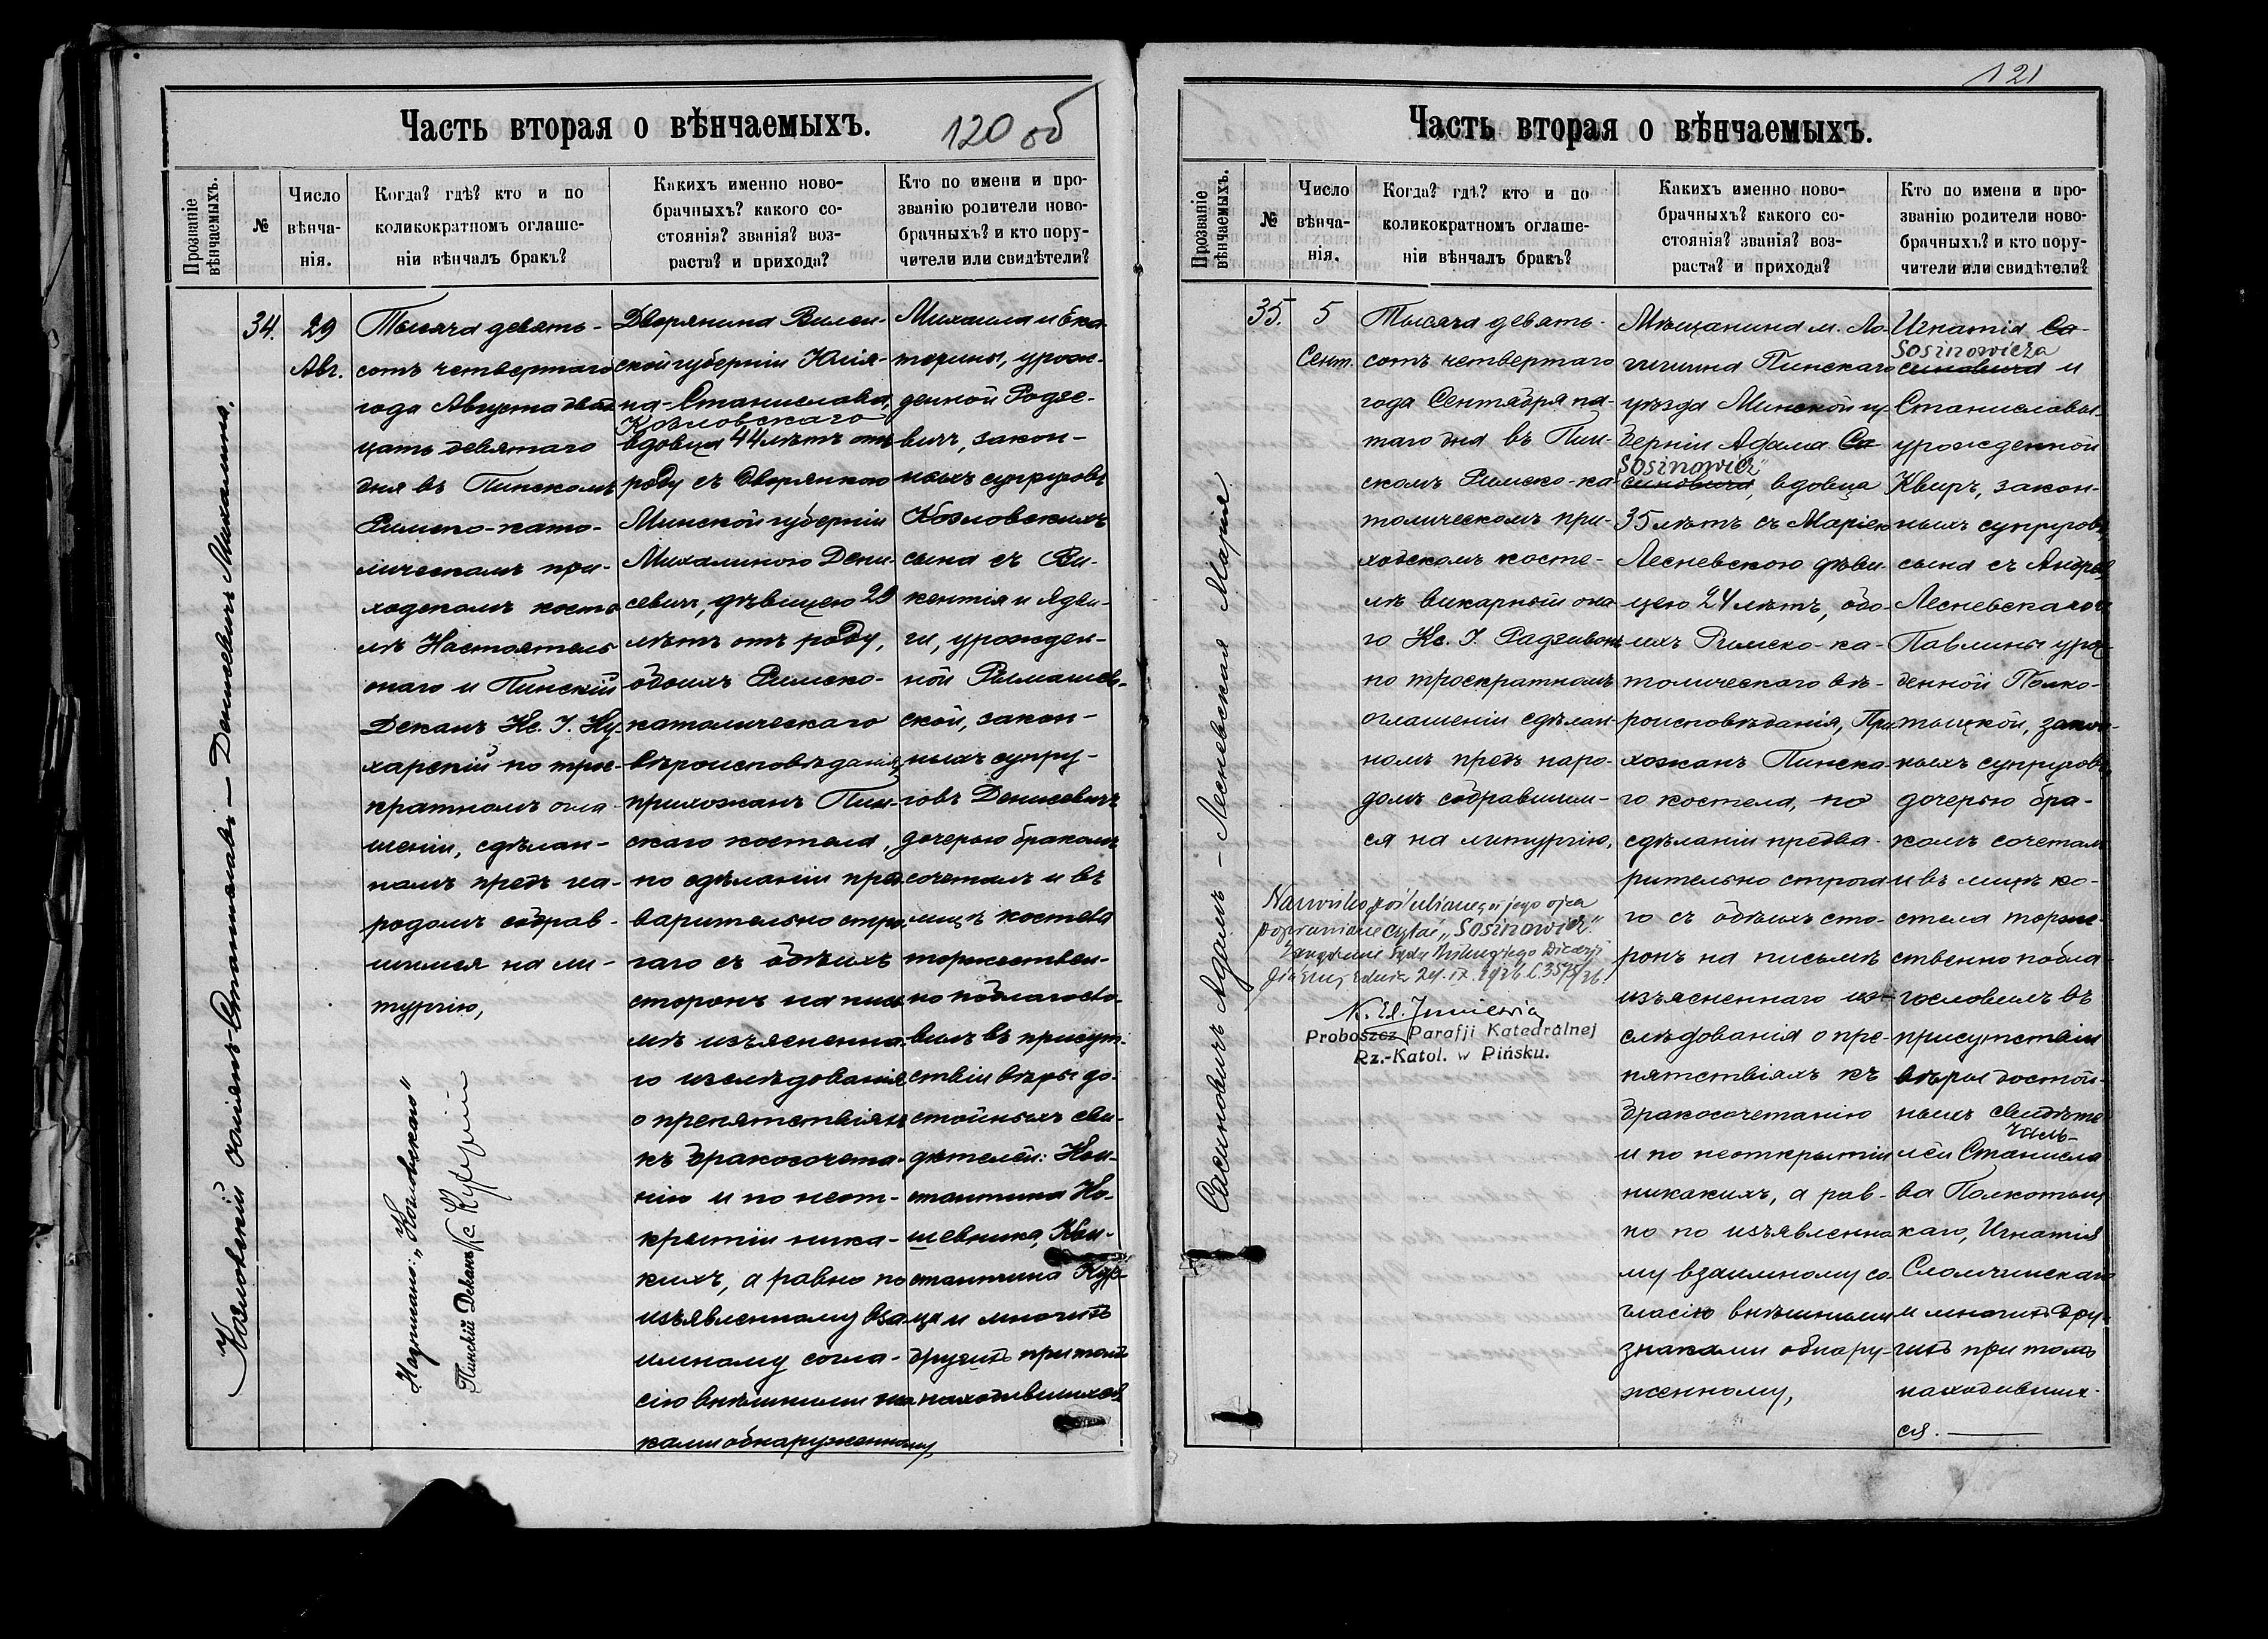 Часть вторая о вѣнчаемыхъ.
120 об
Прозваніе вѣнчаемыхъ.
№
Число вѣнча-
нія.
Когда? гдѣ? кто и по
коликократномъ оглаше-
ніи вѣнчалъ бракъ?
Какихъ именно ново-
брачныхъ? какого со-
стоянія? званія? воз-
раста? и прихода?
Кто по имени и про-
званію родители ново-
брачныхъ? и кто пору-
чители или свидѣтели?
Козловскій Юліянъ-Станиславъ — Денисевичъ Михалина.
34.
29
Авг.
Тысяча девять-
сотъ четвертаго
года Августа двад
цать девятаго
дня въ Пинскомъ
Римско-като-
лическомъ при-
ходскомъ косте
лѣ Настоятель
онаго и Пинскій
Деканъ Кс. І. Ку-
харскій по трое-
кратномъ огла
шеніи, сдѣлан-
номъ предъ на-
родомъ собрав-
шимся на ли-
тургію,
Надписано: „Козловскаго"
Пинскій Деканъ Кс.
Дворянина Вилен-
ской губерніи Юлія-
на-Станислава
Козловскаго
вдовца 44 лѣтъ отъ
роду съ Дворянкою
Минской губерніи
Михалиною Дени-
севичъ, дѣвицею 29
лѣтъ отъ роду,
обоихъ Римско-
католическаго
вѣроисповѣданія,
прихожанъ Пин-
скаго костела,
по сдѣланіи пред
варительно стро-
гаго съ обѣихъ
сторонъ на пись
мѣ изъясненна-
го изслѣдованія
о препятствіяхъ
къ бракосочета-
нію и по неот-
крытіи ника-
кихъ, а равно по
изъявленному вза
имному согла-
сію внѣшними зна
ками обнаруженному,
Михаила и Ека-
терины, урож-
денной Родзе-
вичъ, закон-
ныхъ супруговъ
Козловскихъ
сына съ Ви-
кентія и Ядви-
ги, урожден-
ной Рымашев-
ской, закон-
ныхъ супру-
говъ Денисевичъ
дочерью бракомъ
сочеталъ и въ
лицѣ костела
торжествен-
но поблагосло-
вилъ въ присут-
ствіи вѣры до-
стойныхъ сви-
дѣтелей: Кон-
стантина Ко-
шевника, Кон-
стантина Кур
ца и многихъ
другихъ при томъ
находившихся
121
Часть вторая о вѣнчаемыхъ.
Прозваніе вѣнчаемыхъ.
№
Число вѣнча-
нія.
Когда? гдѣ? кто и по
коликократномъ оглаше-
ніи вѣнчалъ бракъ?
Какихъ именно ново-
брачныхъ? какого со-
стоянія? званія? воз-
раста? и прихода?
Кто по имени и про-
званію родители ново-
брачныхъ? и кто пору-
чители или свидѣтели?
Сасиновичъ Адамъ — Лесневская Марія
35.
5
Сент.
Тысяча девять-
сотъ четвертаго
года Сентября пя-
таго дня въ Пин-
скомъ Римско-ка-
толическомъ при-
ходскомъ косте-
лѣ викарный она
го Кс. І. Радзивонъ
по троекратномъ
оглашеніи сдѣлан-
номъ предъ наро-
домъ собравшим-
ся на литургію,
Nazwisko poślubianego i jego ojca
poprawiono czytać „Sosinowicz"
Zarządzenie Sądu Biskupiego Diecezji
Proboszcz Parafji Katedralnej
Rz.-Katol. w Pińsku.
Мѣщанина м. Ло-
гишина Пинскаго
уѣзда Минской гу-
берніи Адама Са-
Sosinowicz
синовича, вдовца
35 лѣтъ съ Маріею
Лесневскою дѣви-
цею 24 лѣтъ, обо-
ихъ Римско-ка-
толическаго вѣ-
роисповѣданія, При
хожанъ Пинска-
го костела, по
сдѣланіи предва-
рительно строга
го съ обѣихъ сто-
ронъ на письмѣ
изъясненнаго из-
слѣдованія о пре-
пятствіяхъ къ
бракосочетанію
и по неоткрытіи
никакихъ, а рав-
но по изъявленно
му взаимному со-
гласію внѣшними
знаками обнару-
женному,
Игнатія Са-
Sosinowicza
синовича и
Станиславы
урожденной
Квиръ, закон-
ныхъ супруговъ,
сына съ Андрея
Лесневскаго и
Павлины урож-
денной Полко-
тыцкой, закон-
ныхъ супруговъ,
дочерью бра-
комъ сочеталъ
и въ лицѣ ко-
стела торже-
ственно побла-
гословилъ въ
присутствіи
вѣры достой-
ныхъ свидѣте
лей Станисла
ва Полкотыц
каго, Игнатія
Сломчинскаго
и многихъ дру-
гихъ при томъ
находивших-
ся.